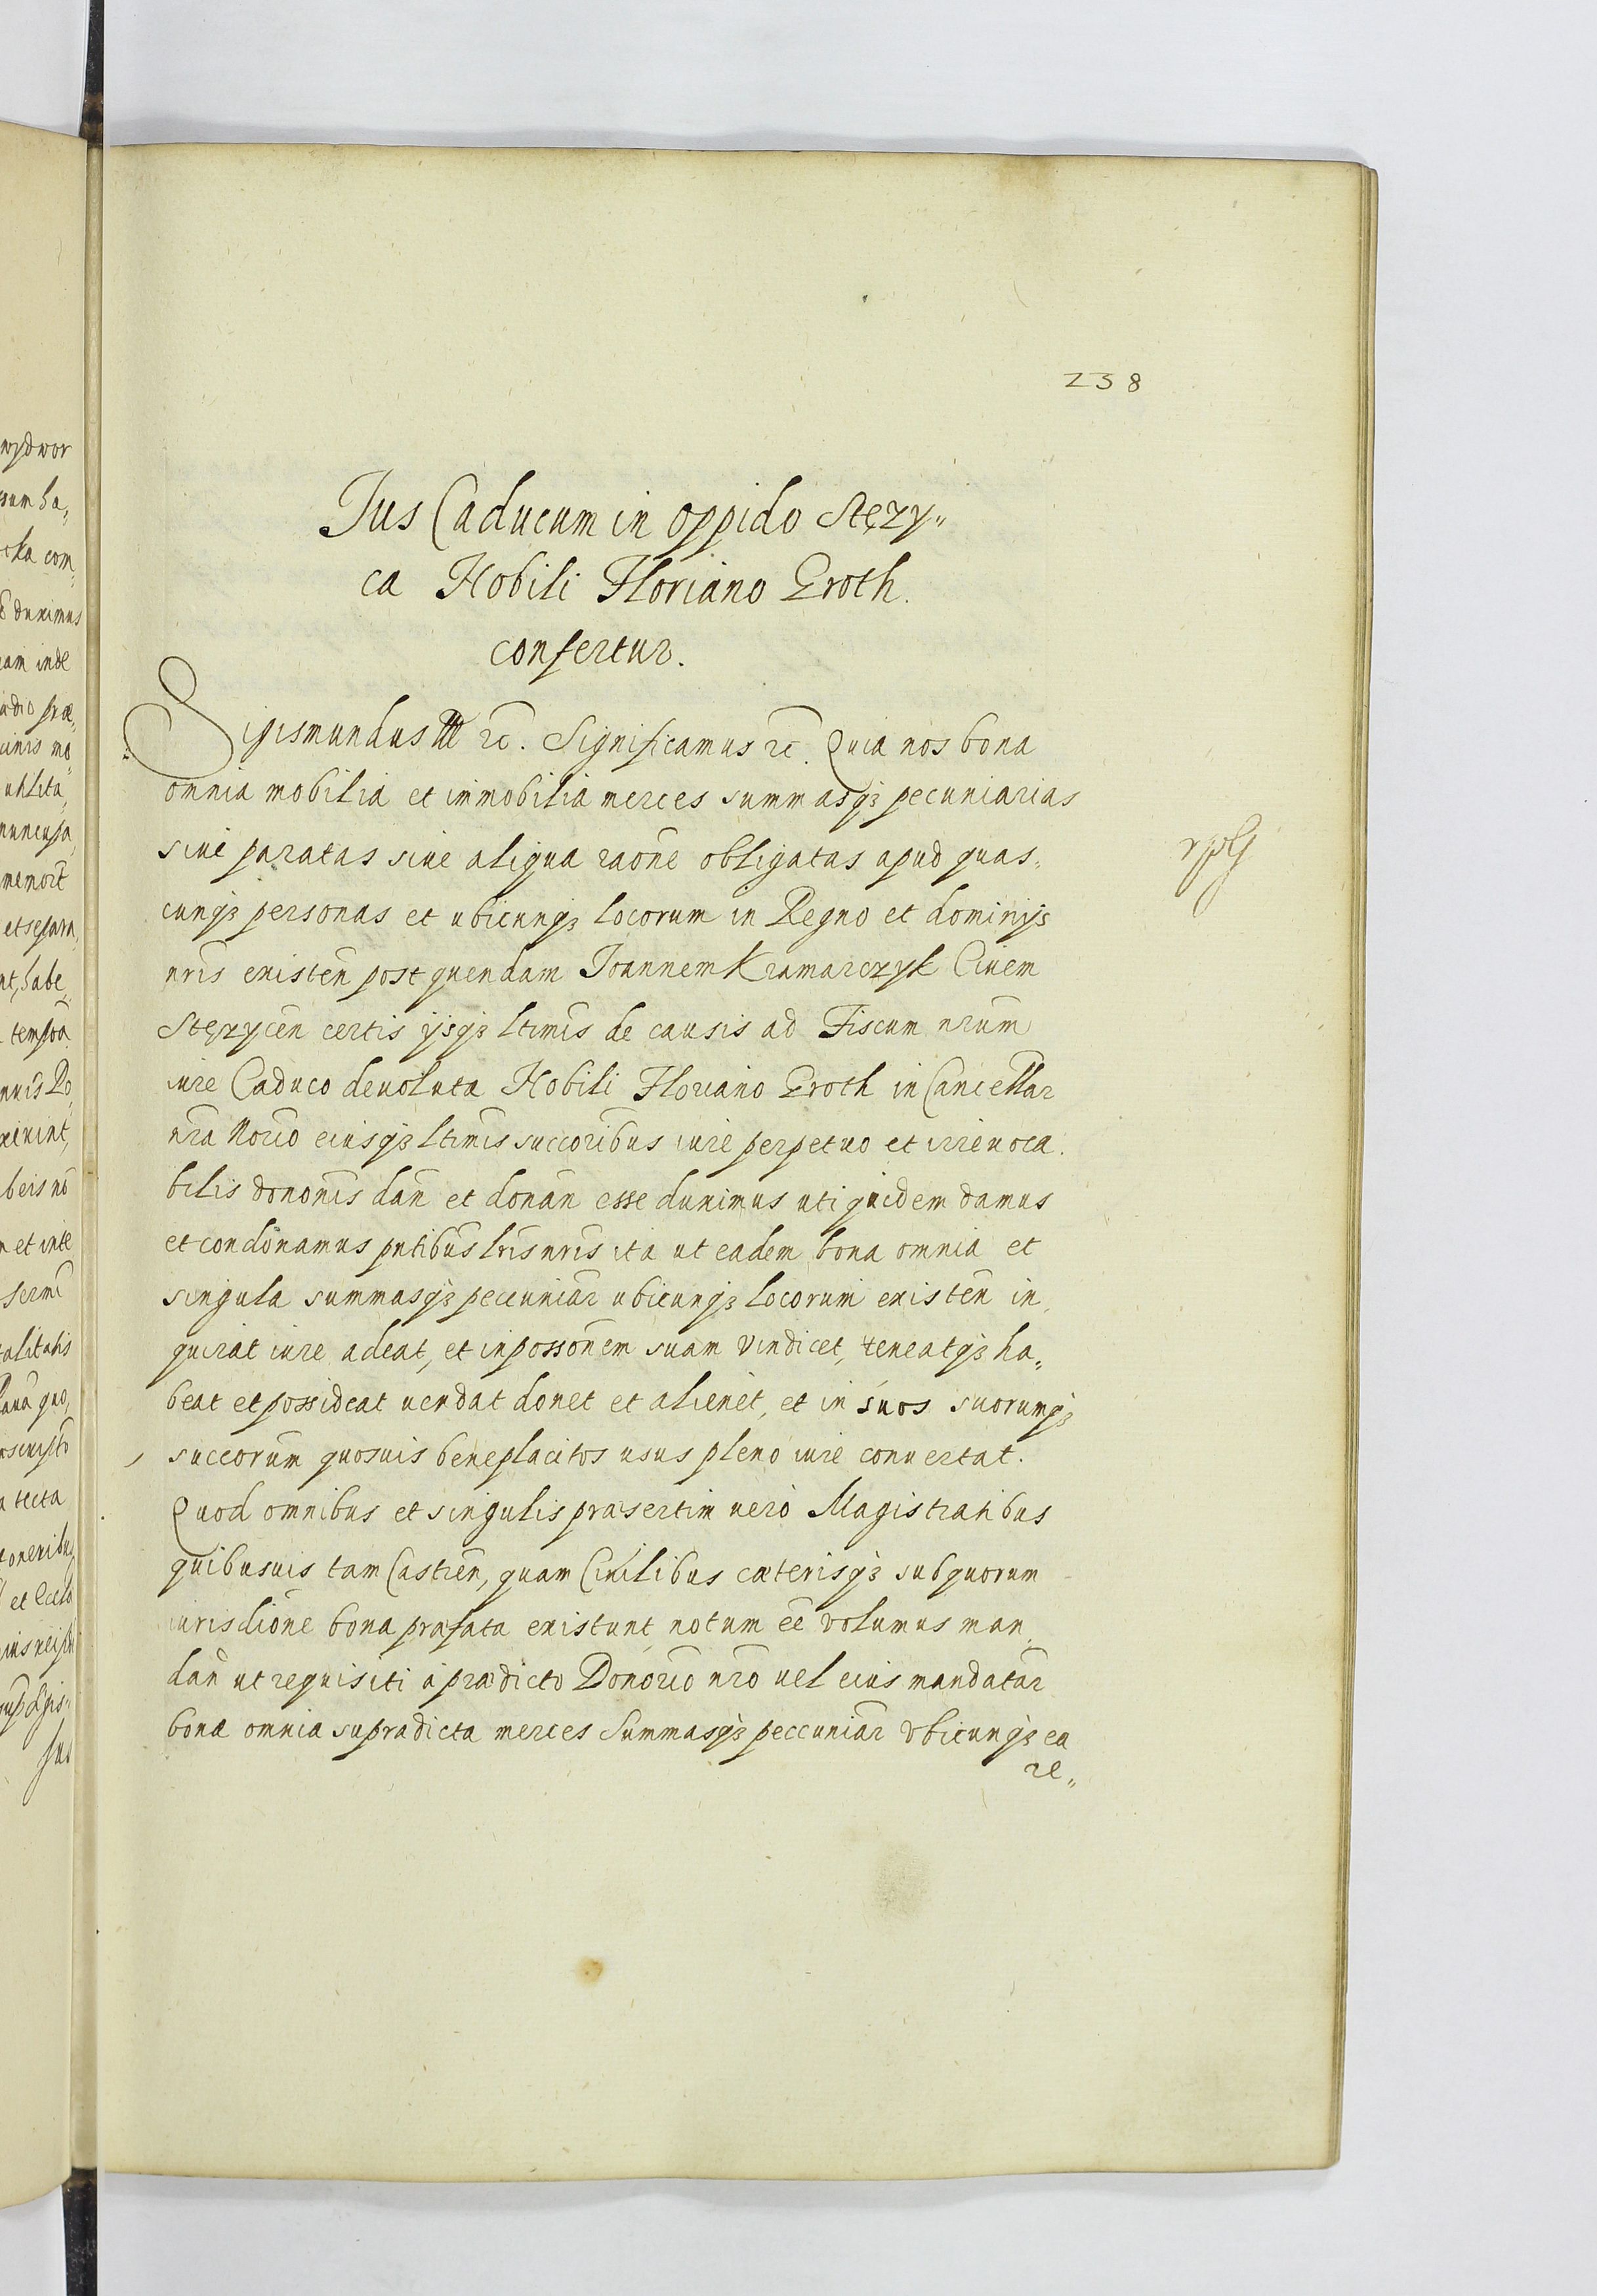 238
Jus Caducum in oppido Stęzy„
ca Nobili Floriano Groth.
confertur.
Sigismundus III rc̃. Significamus rc̃. Quia nos bona
omnia mobilia et immobilia merces summasqꝫ pecuniarias
siue paratas siue aliqua raõne obligatas apud quas„
cunqꝫ personas et ubicunqꝫ locorum in Regno et dominijs
nr̃is existeñ post quendam Joannem Kramarczyk Ciuem
Stęzyceñ certis ijsqꝫ ltimis de causis ad Fiscum nr̃um
iure Caduco deuoluta Nobili Floriano Groth in Cancellar̃
nr̃a Norio eiusqꝫ ltimis succoribus iure perpetuo et irreuoca„
bilis dononis dañ et donañ esse duximus uti quidem damus
et condonamus pñtibus lr̃is nr̃is ita ut eadem bona omnia et
singula summasqꝫ peccuniar̃ ubicunqꝫ locorum existeñ in„
quirat iure adeat, et in possonem suam vindicet, teneatqꝫ ha„
beat et possideat uendat donet et alienet, et in suos suorumqꝫ
succorum quosuis beneplacitos usus pleno iure conuertat.
Quod omnibus et singulis præsertim uero Magistratibus
quibusuis tam Castreñ, quam Ciuilibus cæterisqꝫ sub quorum
iurisdione bona præfata existunt notum ẽe volumus man„
dañ ut requisiti à prædicto Donorio nr̃o uel eius mandatar̃
bona omnia supradicta merces summasqꝫ peccuniar̃ ubicunqꝫ ea
re„